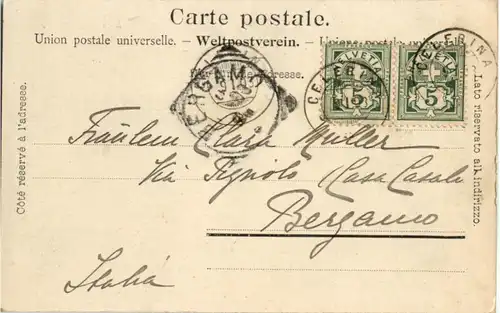 Carte postale.
Union postale universelle. – Weltpostverein. – Unione postale universale.
adresse.
HELVETIA
5
HELVETIA
5
CELERINA
CELERINA
BERGAMO
Côté réservé à l'adresse.
Lato riservato all'indirizzo.
Fräulein Clara Müller
Via Pignolo Casa Casali
Bergamo
Italia